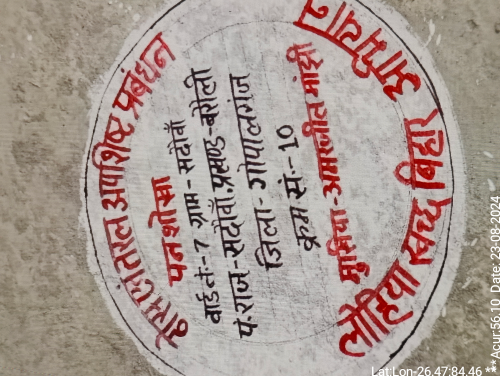 ठोस एवं तरल अपशिष्ट प्रबंधन
पनशोखा
वार्ड नं:-7 ग्राम-सदौवाँ
पं.राज-सदौवाँ, प्रखण्ड-बरौली
जिला-गोपालगंज
क्रम सं:-10
मुखिया-अमरजीत मांझी
लोहिया स्वच्छ बिहार अभियान
Lat:Lon-26.47:84.46 ***Acur:56.10 Date: 23-08-2024